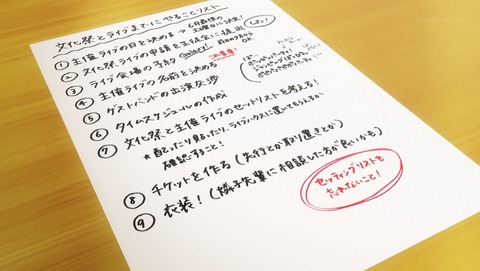 文化祭とライブまでにやることリスト
① 主催ライブの日を決める → 6月最後の土曜日に決定!
② 文化祭ライブの申請を生徒会に提出
③ ライブ会場の予約
④ 主催ライブの名前を決める
⑤ ゲストバンドの出演交渉
⑥ タイムスケジュールの作成
⑦ 文化祭と主催ライブのセットリストを考える!
★ 配ったり貼ったり、ライブハウスに置いてもらえるか
確認すること!
⑧ チケットを作る(先行とか取り置きとか)
⑨ 衣装!(燐子先輩に相談した方が良いかも)
セッティングリストも
忘れないこと!